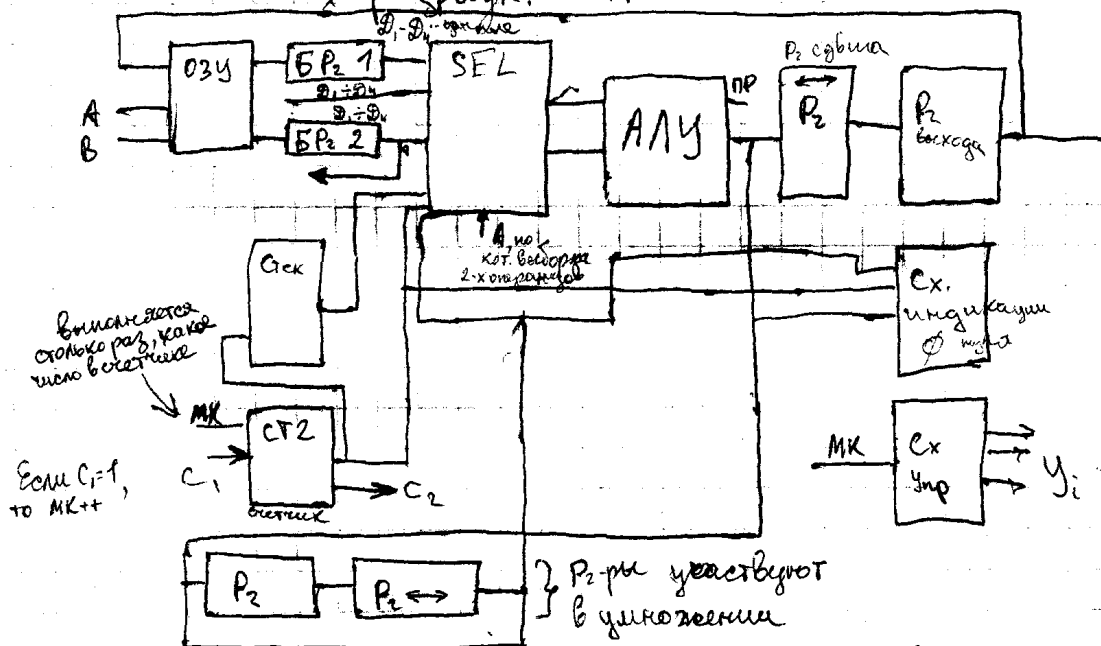 Д₁-Д₄
ОЗУ
БРг 1
SEL
Д₁÷Д₄
Д₁÷Д₄
БРг 2
A
B
АЛУ
ПР
Рг сдвига
↔
Рг
Рг
выхода
А, по
кот. выборка
2-х операндов
Стек
Сх.
индикации
∅ нуля
выполняется
столько раз, какое
число в счетчике
МК
СТ2
C₁
C₂
счетчик
Если C₁=1,
то МК++
МК
Сх
Упр
Yᵢ
Рг
Рг ↔
} Рг-ры участвуют
в умножении